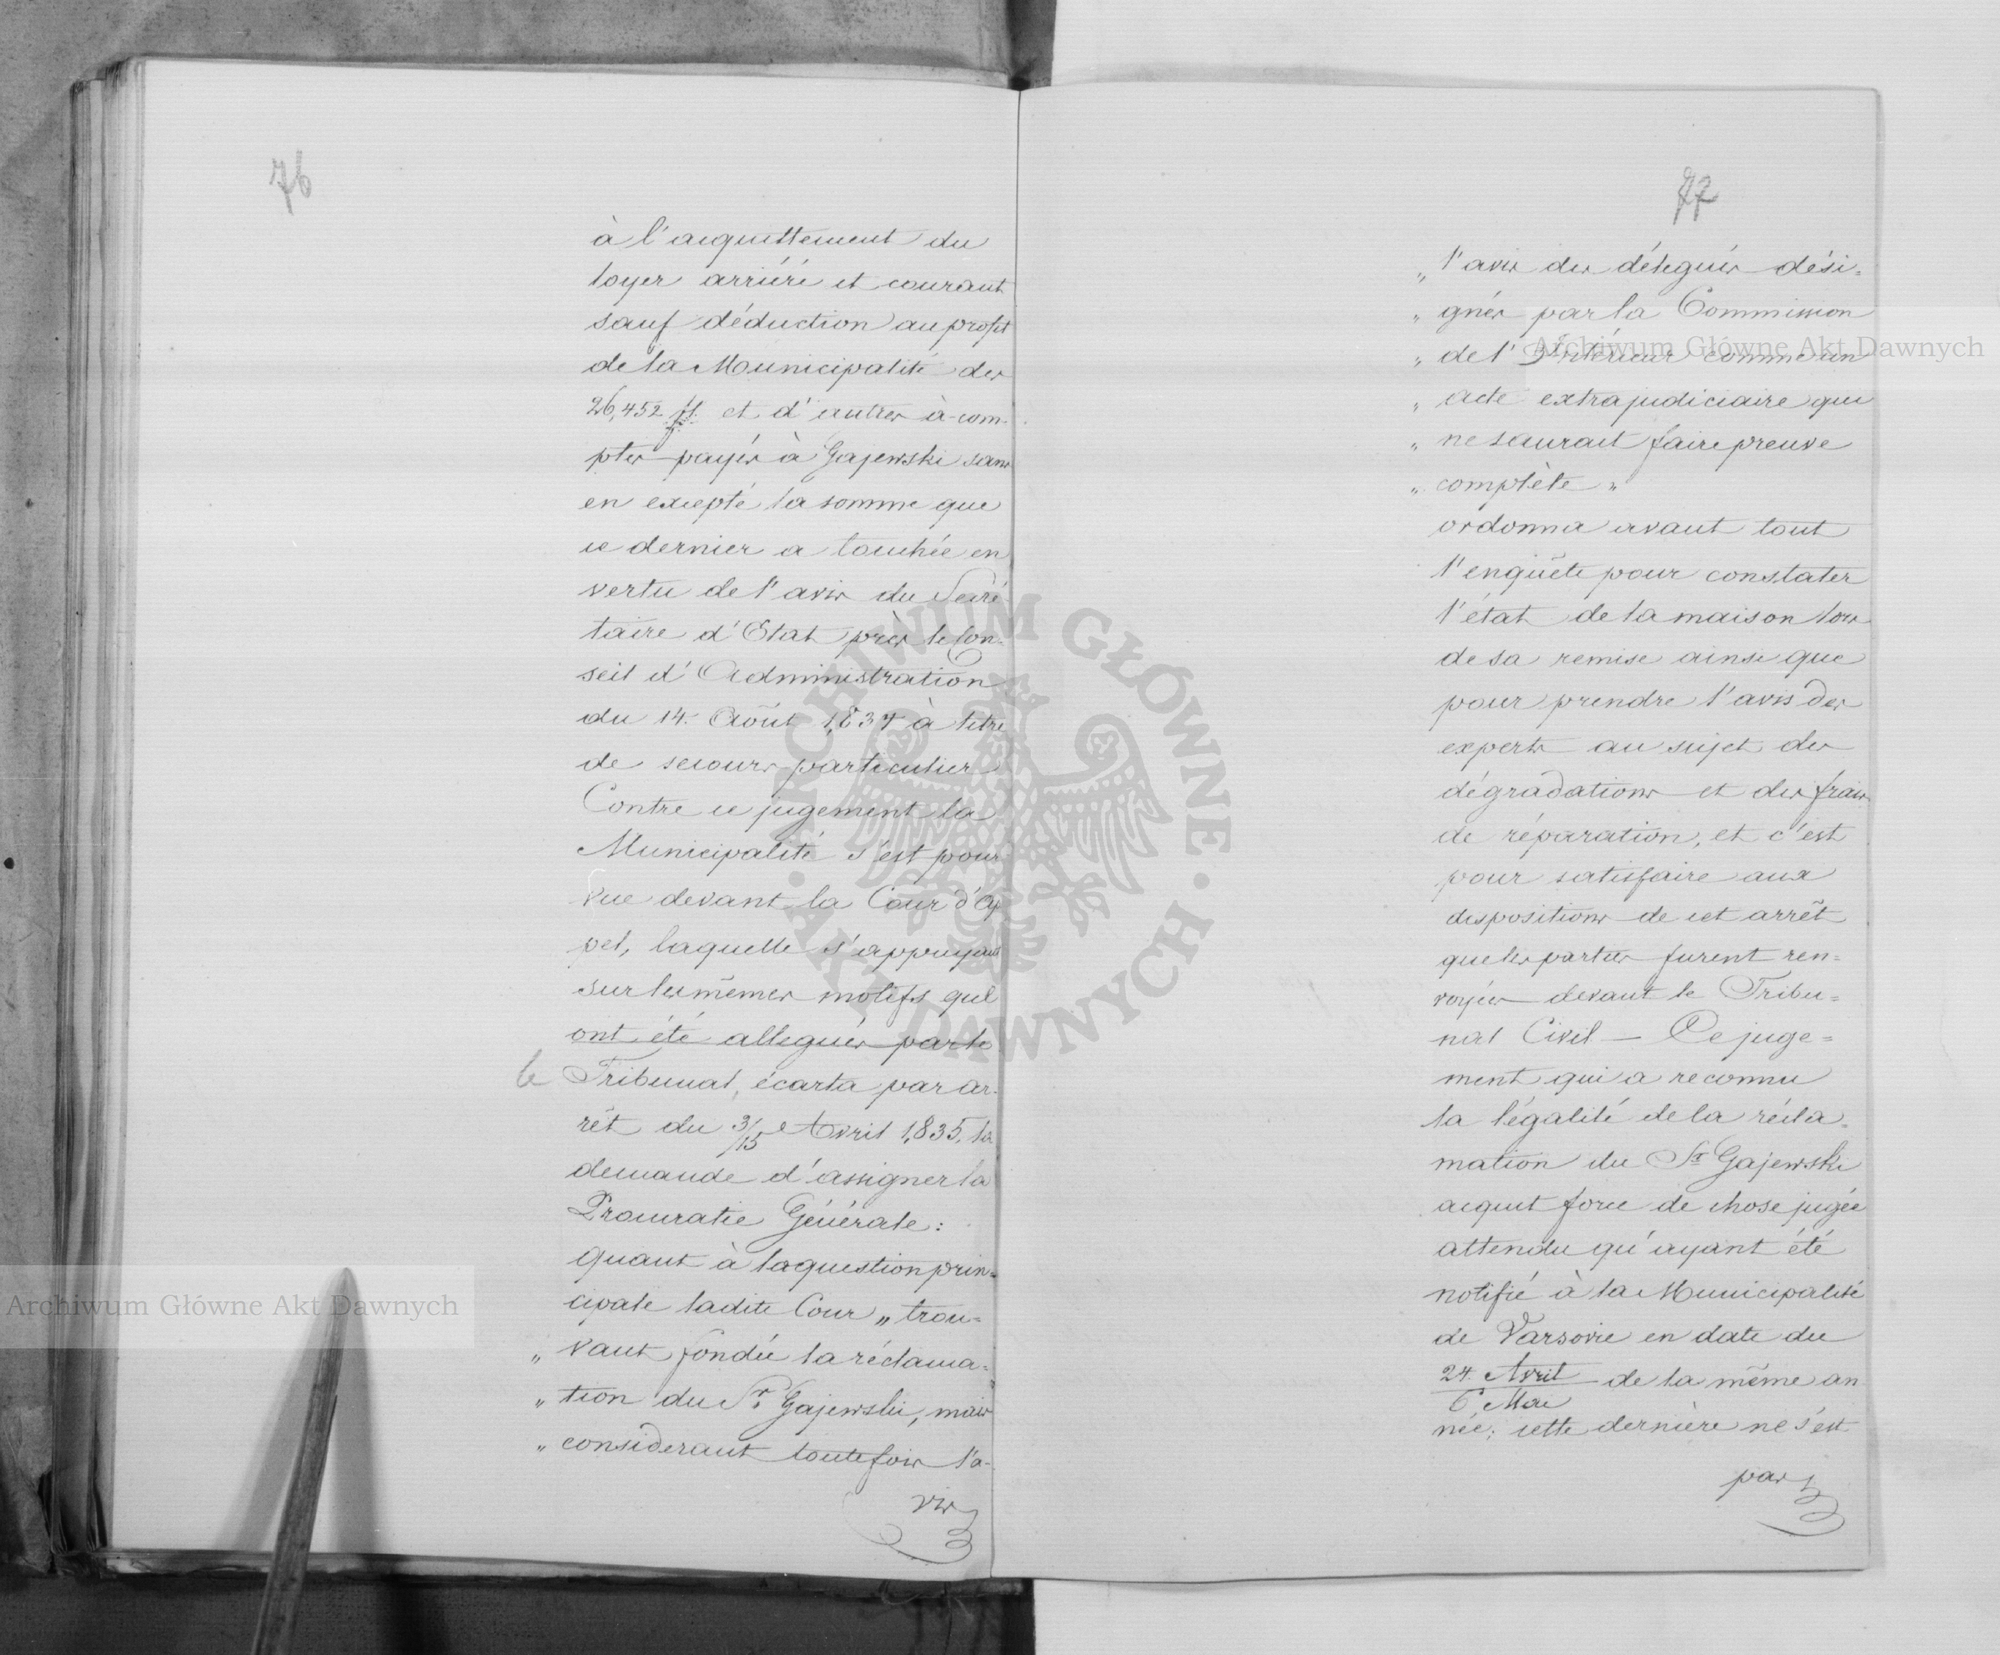 76
à l'acquittement du
loyer arriéré et courant
sauf déduction au profit
de la Municipalité des
26,452 fl. et d'autres à-com-
ptes payés à Gajewski sans
en excepté la somme que
ce dernier a touchée en
vertu de l'avis du Secré
taire d'Etat près le Con-
seil d'Administration
du 14 Août 1,834 à titre
de secours particulier
Contre ce jugement la
Municipalité s'est pour
vue devant la Cour d'Ap
pel, laquelle s'appuyant
sur les mêmes motifs qui
ont été allegués par le
le Tribunal, écarta par ar-
rêt du 3/15 Avril 1,835, la
demande d'assigner la
Procuratie Générale:
quant à la question prin=
cipale ladite Cour „ trou=
„ vant fondée la réclama=
„ tion du Sr. Gajewski, mais
„ considerant toutefois l'a-
vis
77
„ l'avis des délegués dési=
„ gnés par la Commission
„ de l'Intérieur comme un
„ acte extrajudiciaire qui
„ ne saurait faire preuve
„ complète „
ordonna avant tout
l'enquête pour constater
l'état de la maison lors
de sa remise ainsi que
pour prendre l'avis des
experts au sujet des
dégradations et des frais
de réparation, et c'est
pour satisfaire aux
dispositions de cet arrêt
que les parties furent ren=
voyées devant le Tribu=
nal Civil — Ce juge=
ment qui a reconnu
la légalité de la récla=
mation du Sr Gajewski
acquit force de chose jugée
attendu qu'ayant été
notifié à la Municipalité
de Varsovie en date du
24 Avril / 6 Mai de la même an
née; cette dernière ne s'est
pas
Archiwum Główne Akt Dawnych
Archiwum Główne Akt Dawnych
ARCHIWUM GŁÓWNE · AKT DAWNYCH ·